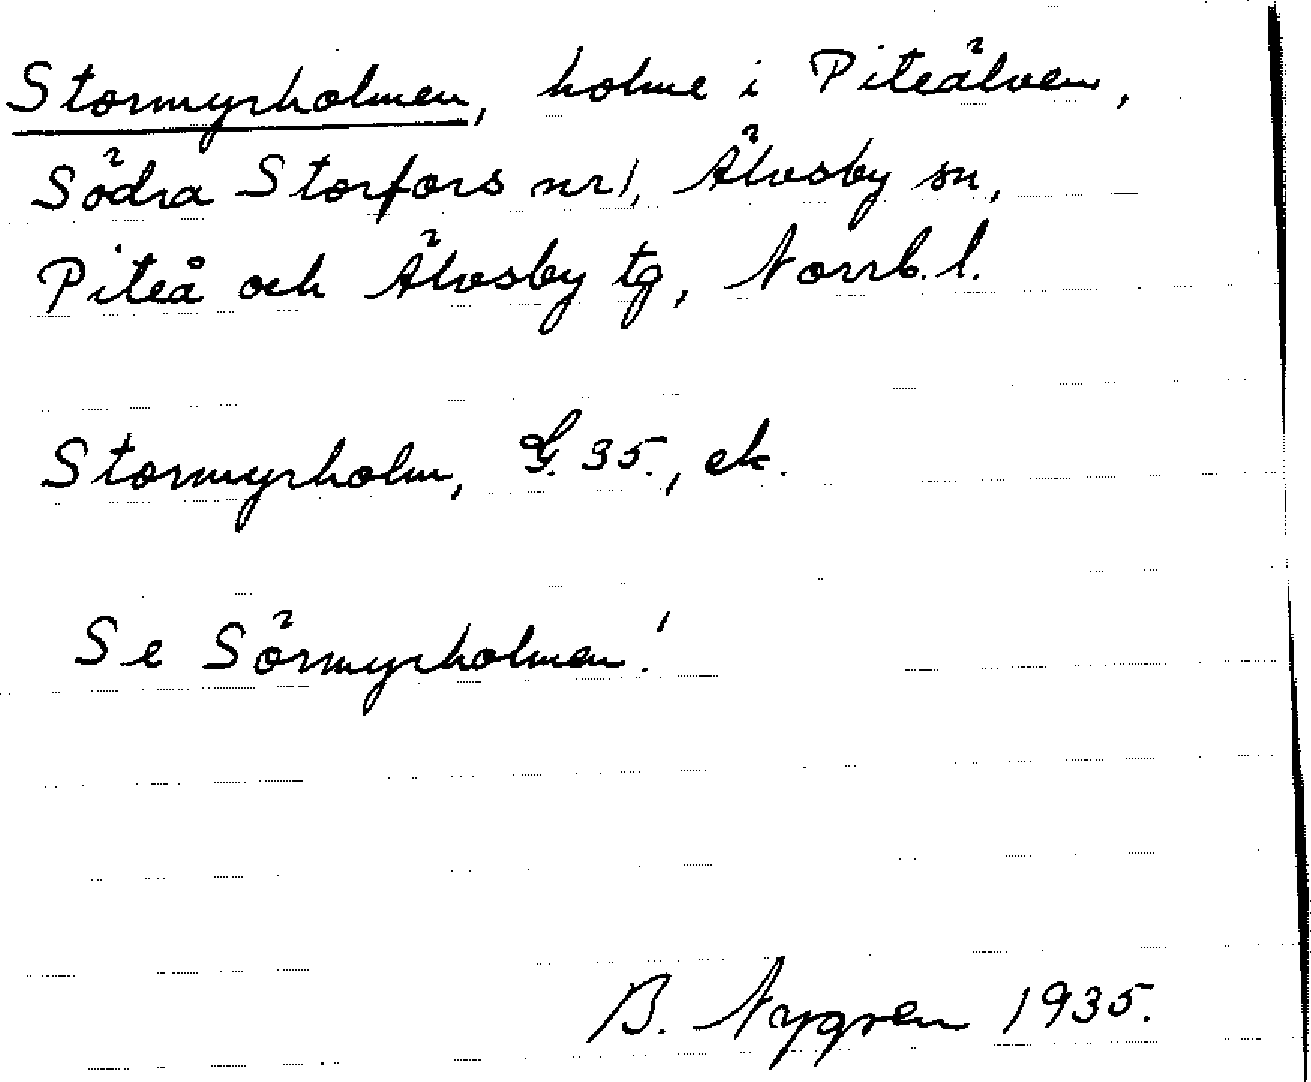 Stormyrholmen, holme i Piteälven,
Södra Storfors nr 1, Älvsby sn,
Piteå och Älvsby tg, Norrb. l.
Stormyrholm, G. 35., ek.
Se Sörmyrholmen!
B. Nygren 1935.